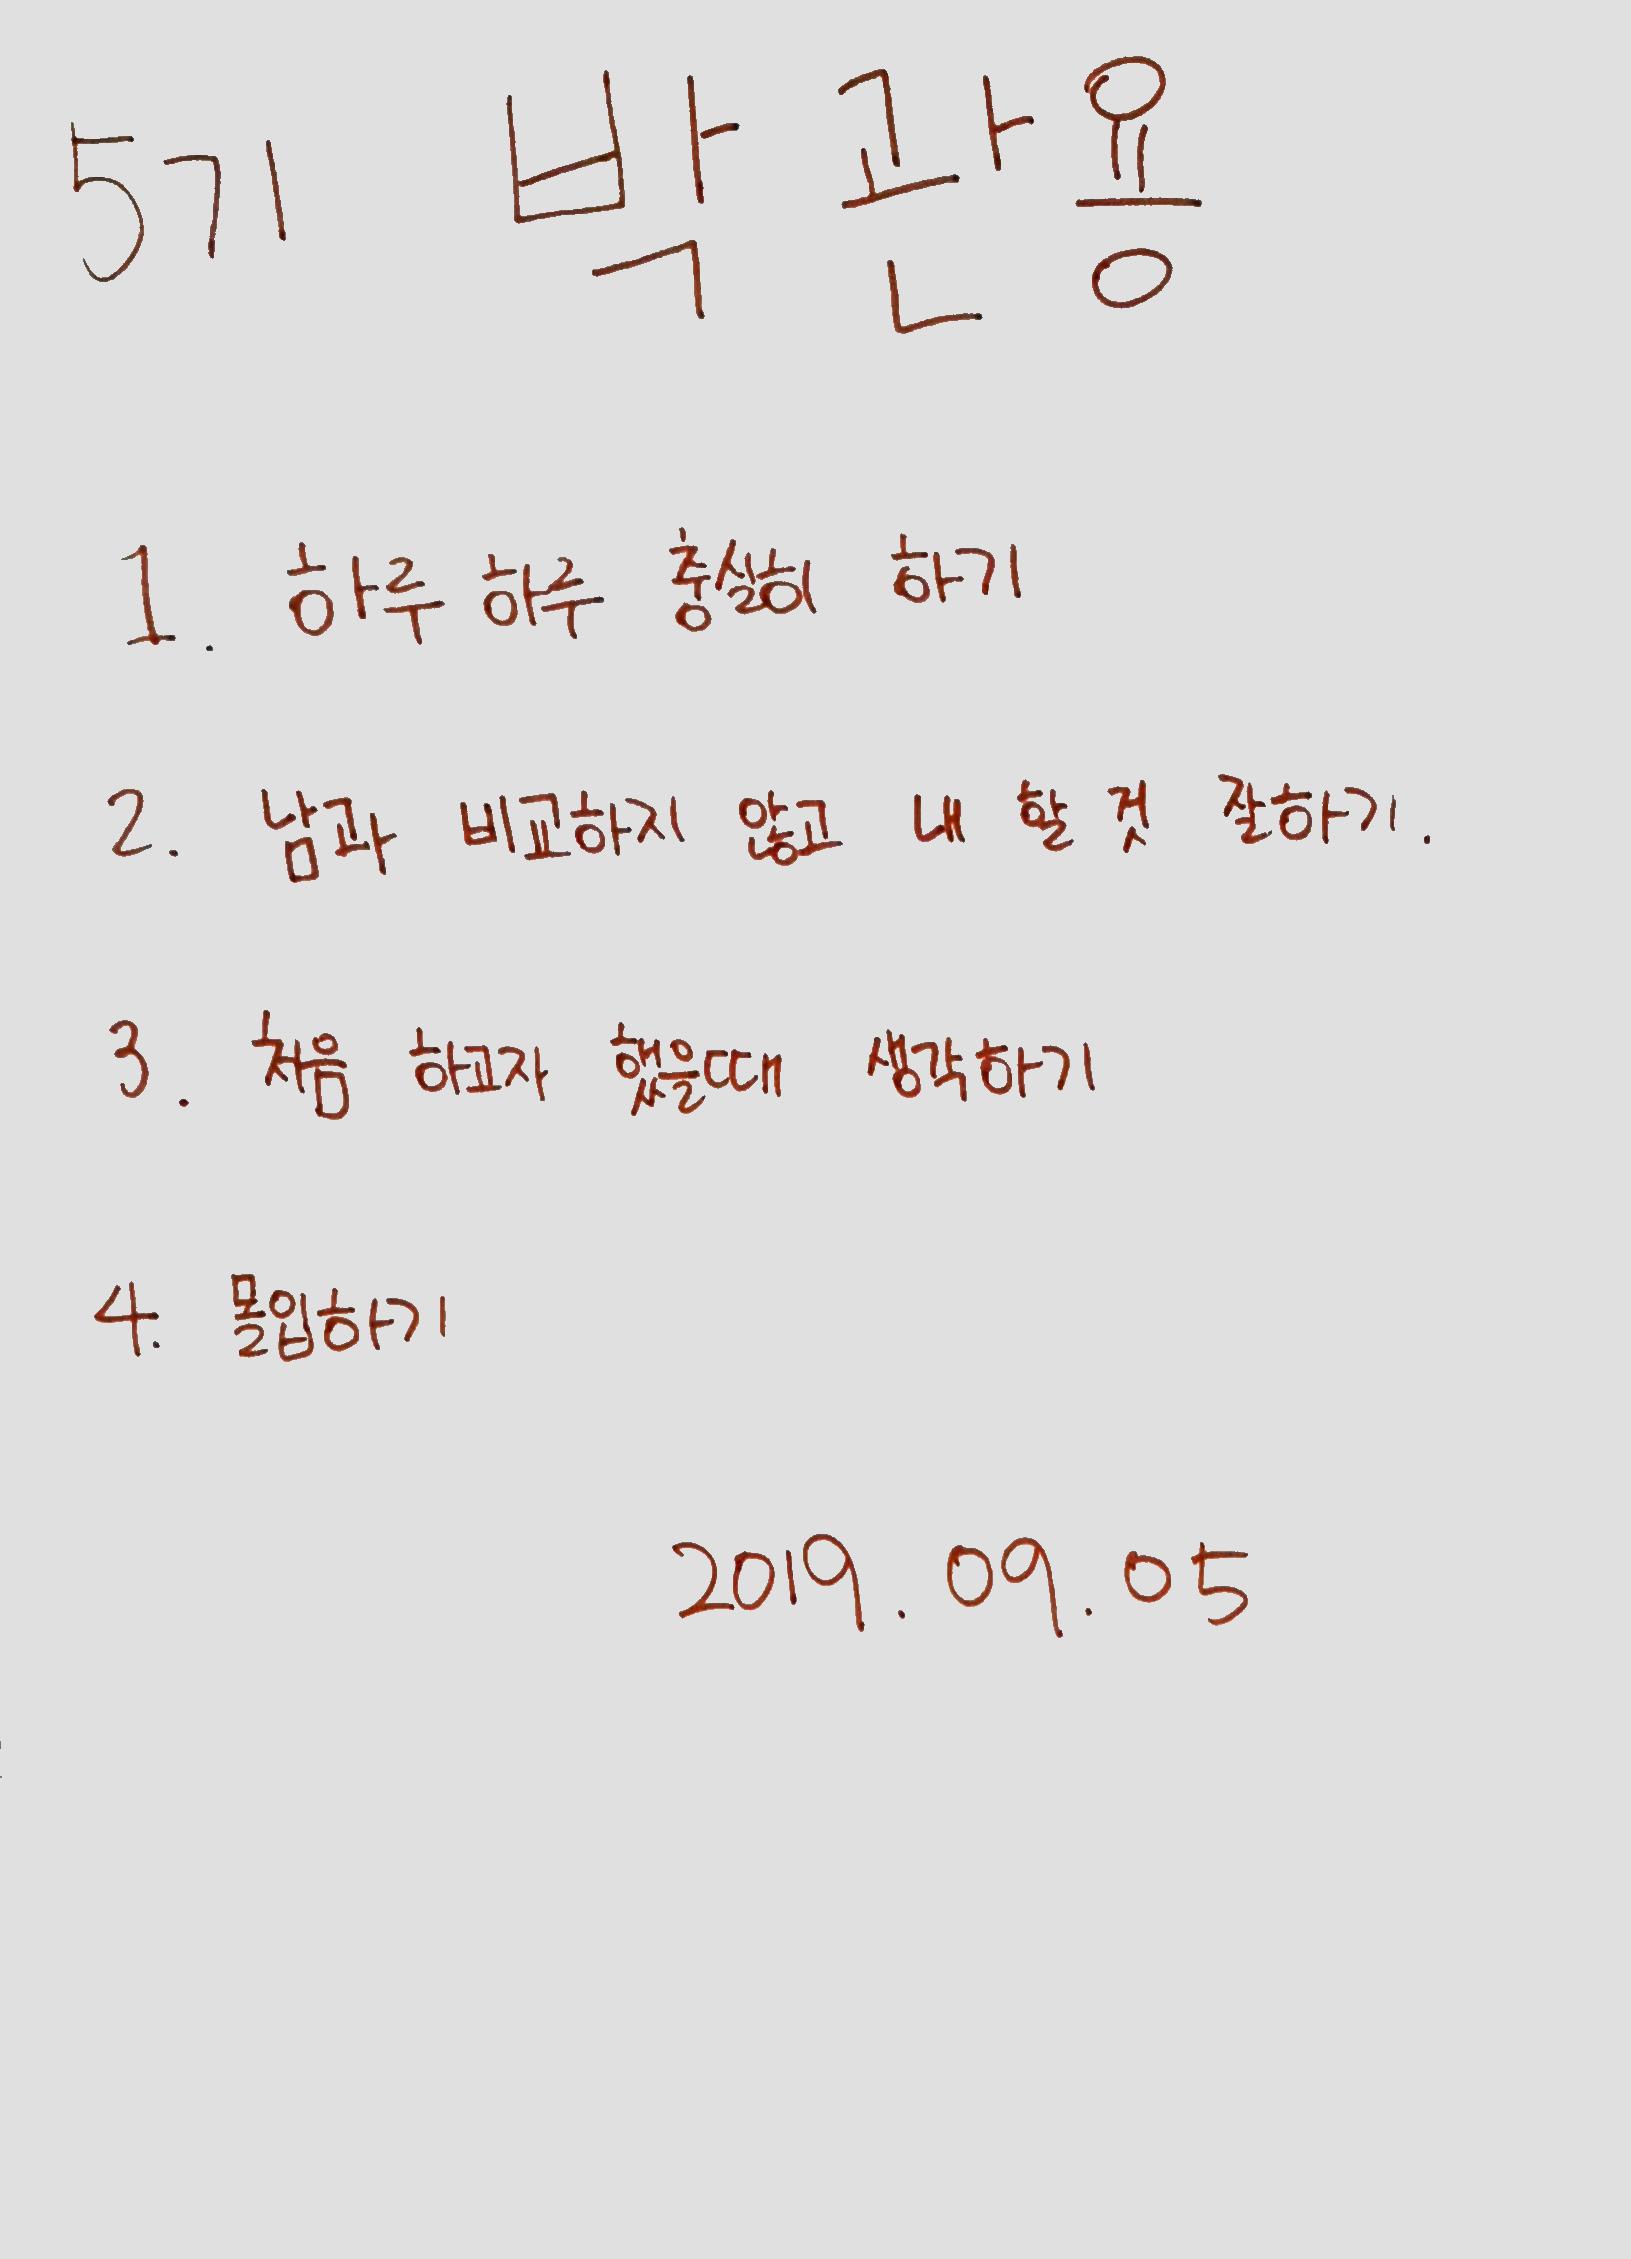 5기 박관용
1. 하루 하루 충실히 하기
2. 남과 비교하지 않고 내 할 것 잘하기.
3. 처음 하고자 했을때 생각하기
4. 몰입하기
2019.09.05